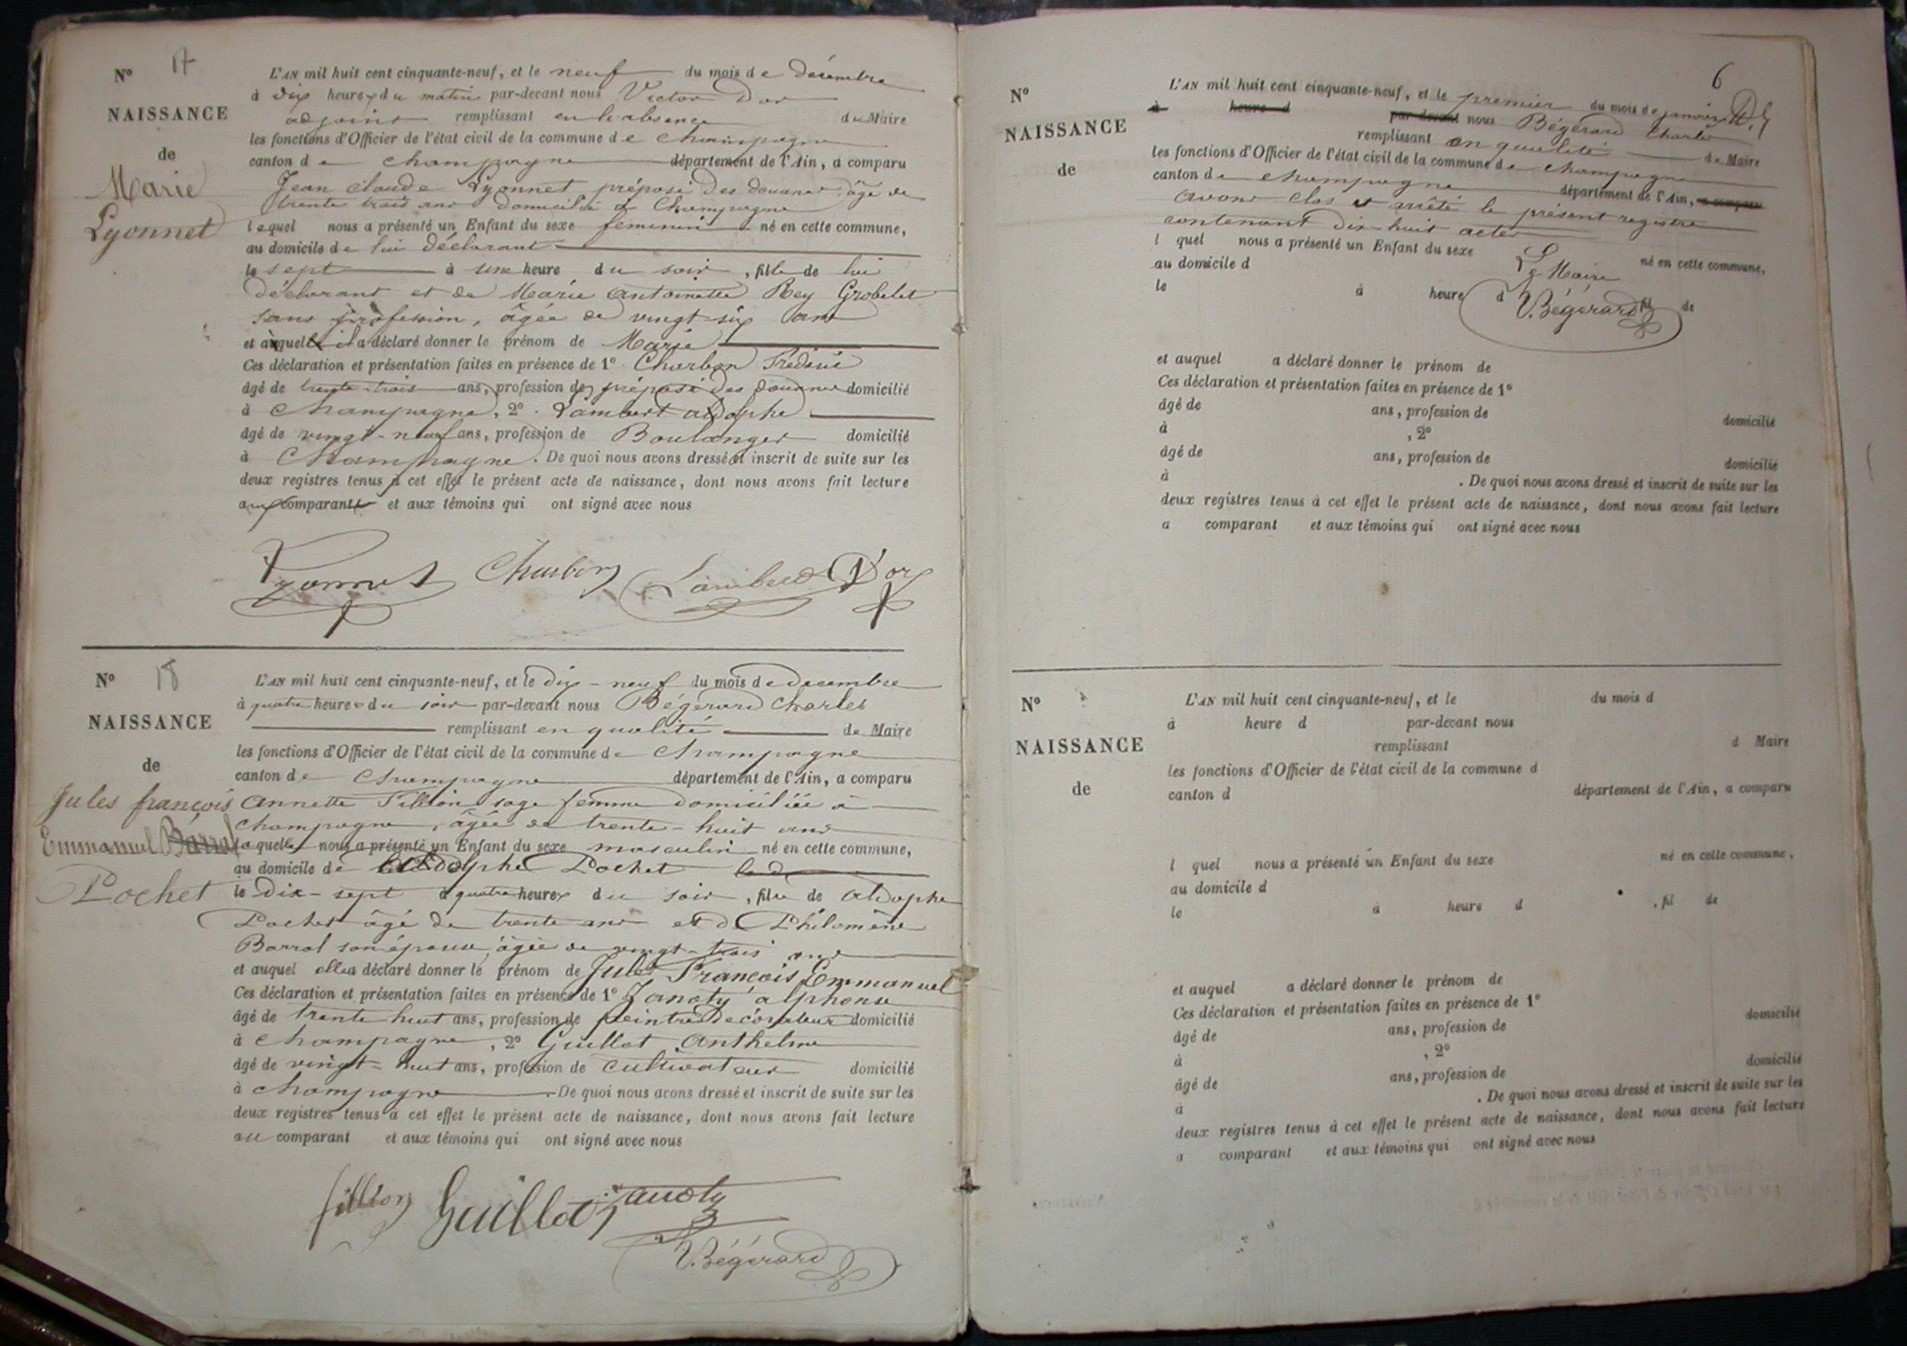 N° 17
NAISSANCE
de
Marie
Lyonnet
L'AN mil huit cent cinquante-neuf, et le neuf du mois de décembre
à dix heures du matin par-devant nous Victor D'or
adjoint remplissant en l'absence du Maire
les fonctions d'Officier de l'état civil de la commune de champagne
canton de champagne département de l'Ain, a comparu
Jean claude Lyonnet, préposé des douanes âgé de
trente trois ans domicilié à Champagne
lequel nous a présenté un Enfant du sexe feminin né en cette commune,
au domicile de lui déclarant
le sept à une heure du soir, fille de lui
déclarant et de Marie antoinette Rey Grobelet
sans profession, âgée de vingt six ans
et à quelle il a déclaré donner le prénom de Marie
Ces déclaration et présentation faites en présence de 1° Charbon
âgé de trente-trois ans, profession de préposé des douanes domicilié
à Champagne, 2° Lambert adolphe
âgé de vingt-neuf ans, profession de Boulanger domicilié
à Champagne. De quoi nous avons dressé et inscrit de suite sur les
deux registres tenus à cet effet le présent acte de naissance, dont nous avons fait lecture
au comparant et aux témoins qui ont signé avec nous
Lyonnet Charbon Lambert D'or
N° 18
NAISSANCE
de
Jules françois
Emmanuel Barral
Pochet
L'AN mil huit cent cinquante-neuf, et le dix-neuf du mois de decembre
à quatre heures du soir par-devant nous Bégérard Charles
remplissant en qualité de Maire
les fonctions d'Officier de l'état civil de la commune de champagne
canton de champagne département de l'Ain, a comparu
annette Fillion sage femme domiciliée à
champagne, âgée de trente-huit ans
laquelle nous a présenté un Enfant du sexe masculin né en cette commune,
au domicile de adolphe Pochet
le dix-sept à quatre heures du soir, fils de adophe
Pochet âgé de trente ans et de Philomène
Barral son épouse, âgée de vingt-trois ans
et auquel elle a déclaré donner le prénom de Jules François Emmanuel
Ces déclaration et présentation faites en présence de 1° Janoty alphonse
âgé de trente huit ans, profession de peintre décorateur domicilié
à champagne, 2° Guillot Anthelme
âgé de vingt-huit ans, profession de cultivateur domicilié
à champagne De quoi nous avons dressé et inscrit de suite sur les
deux registres tenus à cet effet le présent acte de naissance, dont nous avons fait lecture
au comparant et aux témoins qui ont signé avec nous
fillion Guillot Janoty
Bégérard
6
N°
NAISSANCE
de
L'AN mil huit cent cinquante-neuf, et le premier du mois de janvier
à heure d par-devant nous Bégérard Charles
remplissant en qualité de Maire
les fonctions d'Officier de l'état civil de la commune de champagne
canton de champagne département de l'Ain, a comparu
avons clos et arrêté le présent registre
contenant dix huit actes
l quel nous a présenté un Enfant du sexe né en cette commune,
au domicile d Le Maire
le à heure d fil de
Bégérard
et auquel a déclaré donner le prénom de
Ces déclaration et présentation faites en présence de 1°
âgé de ans, profession de domicilié
à , 2°
âgé de ans, profession de domicilié
à . De quoi nous avons dressé et inscrit de suite sur les
deux registres tenus à cet effet le présent acte de naissance, dont nous avons fait lecture
a comparant et aux témoins qui ont signé avec nous
N°
NAISSANCE
de
L'AN mil huit cent cinquante-neuf, et le du mois d
à heure d par-devant nous
remplissant d Maire
les fonctions d'Officier de l'état civil de la commune d
canton d département de l'Ain, a comparu
l quel nous a présenté un Enfant du sexe né en cette commune,
au domicile d
le à heure d , fil de
et auquel a déclaré donner le prénom de
Ces déclaration et présentation faites en présence de 1°
âgé de ans, profession de domicilié
à , 2°
âgé de ans, profession de domicilié
à . De quoi nous avons dressé et inscrit de suite sur les
deux registres tenus à cet effet le présent acte de naissance, dont nous avons fait lecture
a comparant et aux témoins qui ont signé avec nous